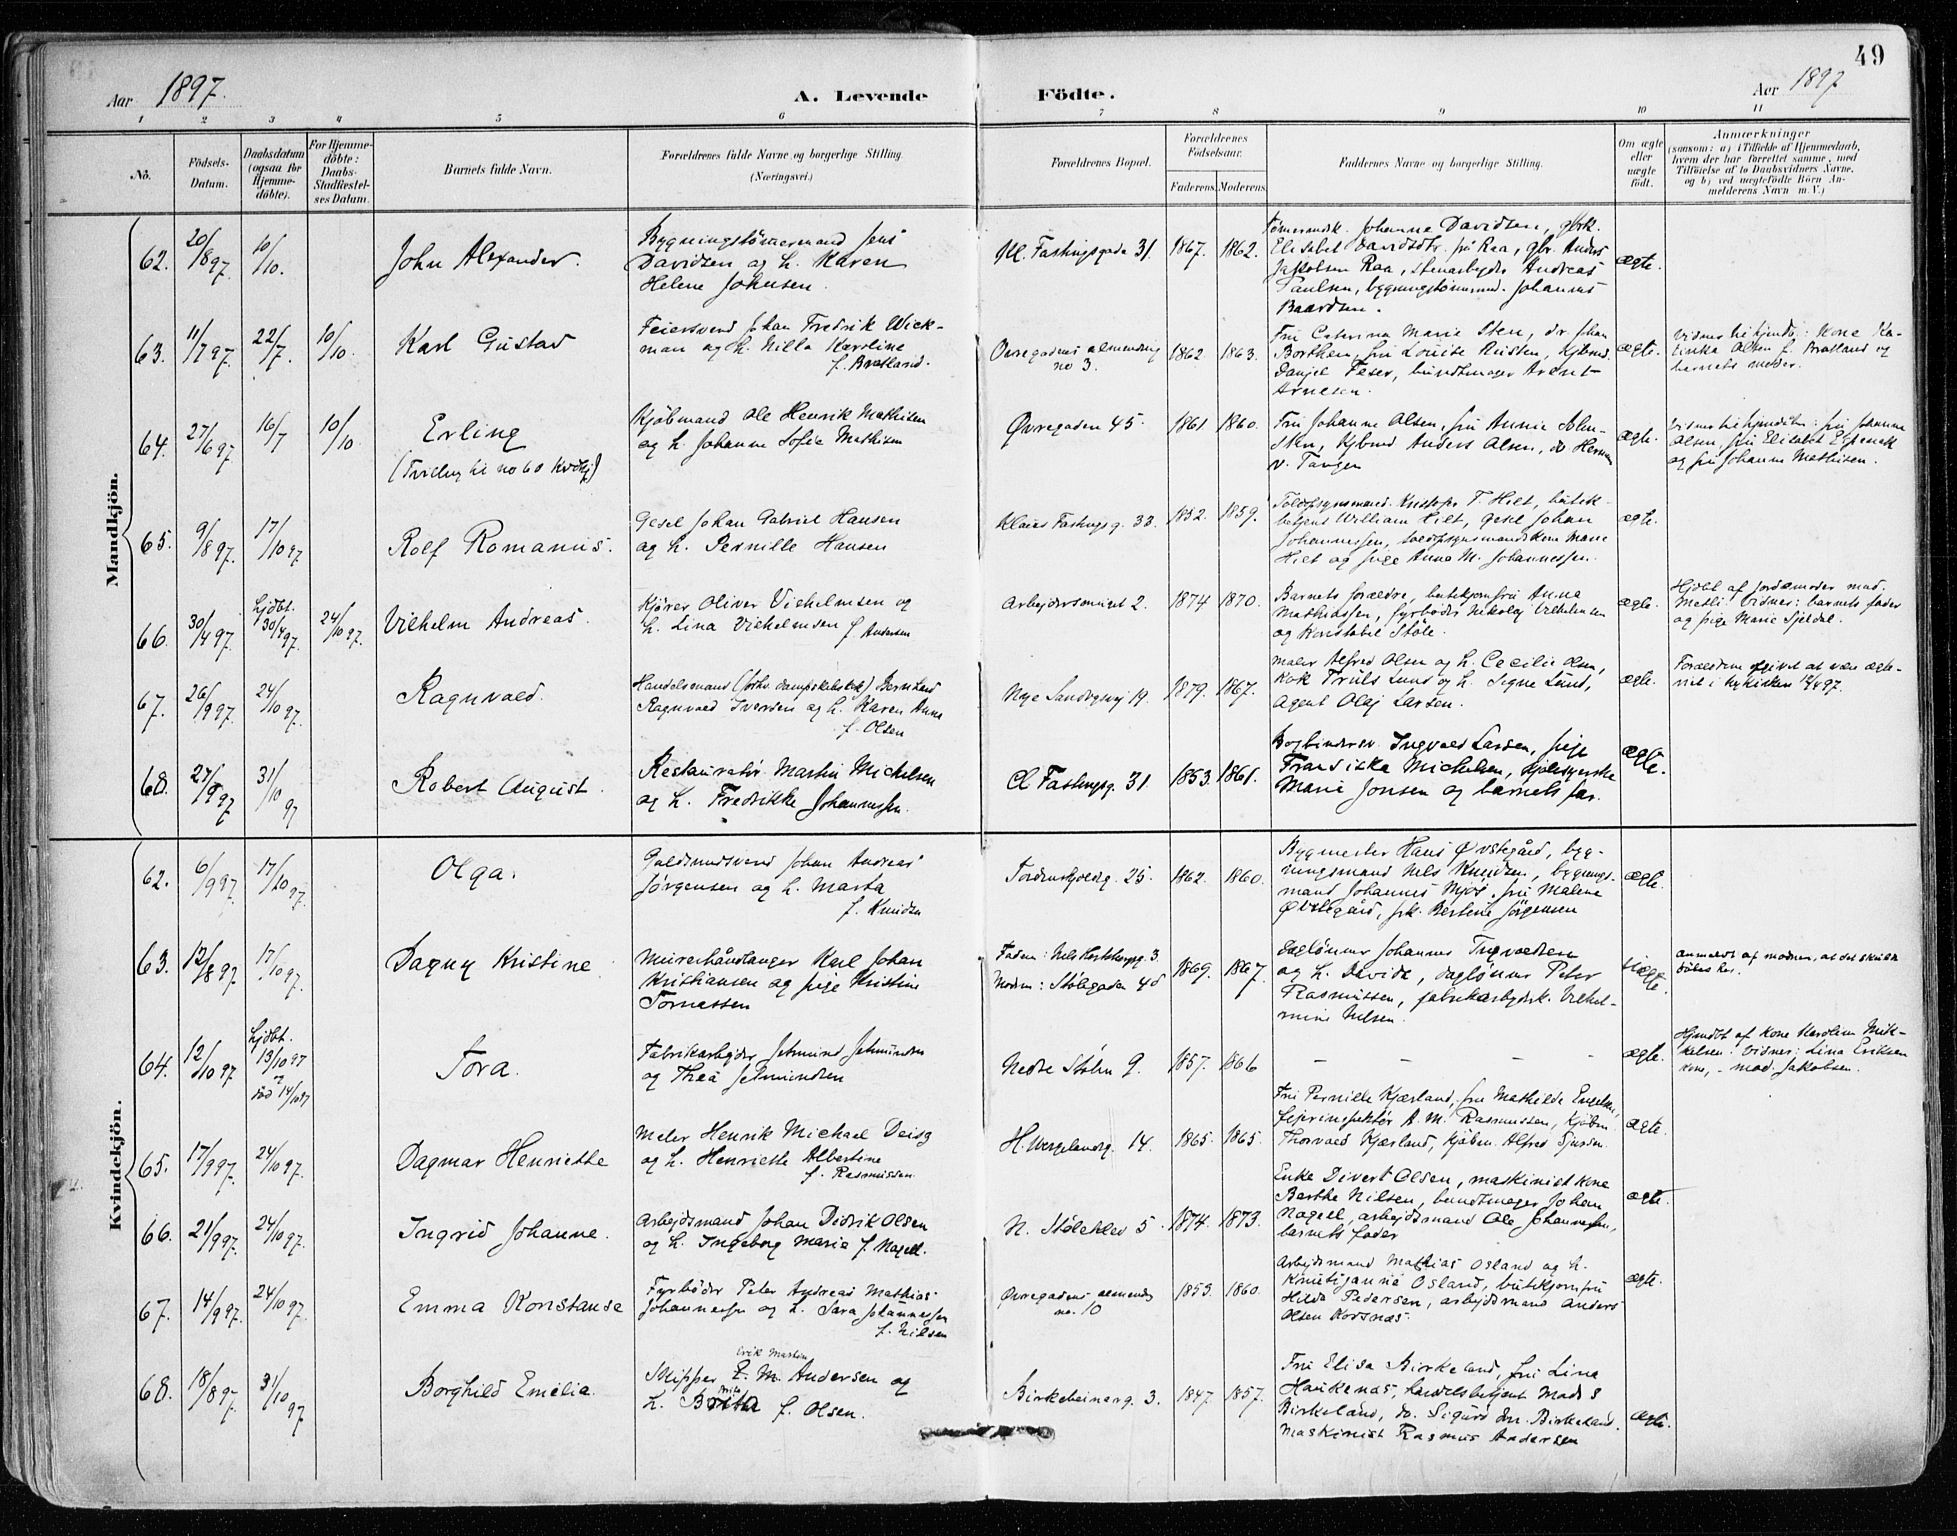 49
Aar 1897.
A. Levende
Födte.
Aar 1897
1 2 3 4 5 6 7 8 9 10 11
No.
Födsels-
Datum.
Daabsdatum
(ogsaa for
Hjemme-
döbte).
For Hjemme-
döbte:
Daabs-
Stadfæstel-
ses Datum.
Barnets fulde Navn.
Forældrenes fulde Navne og borgerlige Stilling.
(Næringsvei.)
Forældrenes Bopæl.
Forældrenes
Födselsaar.
Faderens.
Moderens.
Faddernes Navne og borgerlige Stilling.
Om ægte
eller
uægte
födt.
Anmærkninger
(saasom: a) i Tilfælde af Hjemmedaab,
hvem der har forrettet samme, med
Tilföielse af to Daabsvidners Navne,
og b) ved uægtefödte Börn An-
melderens Navn m. V.)
Mandkjön.
62. 20/8 97. 10/10. John Alexander.
Bygningstömmermand Jens
Davidsen og h. Karen
Helene Johnsen.
Kl. Fastingsgade 31 1867. 1862.
Johanna Davidsen,
Elisabet Davidsdtr. på Raa, gbr. Anders
Jakobsen Raa, stenarbeyder Andreas
Paulsen, bygningstömmermd. Johannes
Baardsen.
ægte.
63. 11/7 97. 22/7. 10/10. Karl Gustav
Feiersvend Johan Fredrik Wick-
man og h. Nilla Karoline
f. Bratland.
Övregadens almending
no 3. 1862. 1863.
Fru Caterina Marie Sten, dr. Johan
Borthen, fru Louise Austen, Kjbmd.
Danjel Feser, bundtmager Arent
Arnesen.
ægte.
Kone Ka-
trika Olsen f. Bratland og
barnets moder.
64. 27/6 97. 16/7 10/10. Erling
(Tvilling til no 60 Kvdkj)
Kjöbmand Ole Henrik Mathisen
og h. Johanne Sofie Mathisen
Øvregaden 45. 1861 1860.
Fru Johanne Olsen, fru Annie
Kjbmd Anders Olsen, do Herman
v. Tangen
ægte.
fru Johanne
Olsen, fru Elisabet Espenak
og fru Johanne Mathisen.
65. 9/8 97. 17/10 97 Rolf Romanus.
Gesel Johan Gabriel Hansen
og h. Pernille Hansen
Klaus Fastingsg. 33. 1852. 1859.
Toldopsynsmand Kristofer T. Hilt, butik-
betjent William Hilt, gesel Johan
Johannessen, toldopsynsmandskone Marie
Hilt og pige Anna M. Johannessen.
ægte.
66. 30/4 97. hjdbt. 30/4 97. 24/10 97. Vilhelm Andreas.
Kjörer Oliver Vilhelmsen og
h. Lina Vilhelmsen f. Andersen
Arbeydersminde 2. 1874 1870.
Barnets forældre, butikjomfru Anna
Mathiassen, fyrböder Nikolay Vilhelmsen
og Konstabel Stöle.
ægte.
Hjdbt af jordemoder mad.
Vidner: barnets fader
og pige Marie Sjeldal.
67. 26/9 97. 24/10 97. Ragnvald.
Handelsmand (forhv. dampskibskok) Bernhard
Ragnvald Iversen og h. Karen Anna
f. Olsen
Nye Sandvigsvej 19. 1879. 1867.
Maler Alfred Olsen og h. Cecilie Olsen,
Kok Truls Lund og h. Signe Lund,
Agent Olaf Larsen.
ægte.
Forældrene opgivet at være ægte-
viet i Nykirken
68. 27/9 97 31/10 97 Robert August.
Restauratör Martin Michelsen
og h. Fredrikke Johannessen.
Cl Fastingsg. 31 1853. 1861.
Bogbindersv. Ingvald Larsen, pige
Fransiska Michelsen, kjolesyerske
Marie Jonsen og barnets far.
ægte.
Kvindekjön.
62. 6/9 97. 17/10 97. Olga.
Guldsmedsvend Johan Andreas
Jörgensen og h. Marta
f. Knudsen
Tordenskjoldsg. 25. 1862. 1860.
Bygmester Hans Øvstegård, byg-
ningsmand Nils Knudsen, bygnings-
mand Johannes Mjös, fru Malene
Øvstegård, frk. Bertine Jörgensen
ægte.
63. 12/8 97. 17/10 97. Dagny Kristine
Murerhåndlanger Karl Johan
Kristiansen og pige Kristine
Tornæssen
Faderen: 3.
Moderen: Stölegaden 48 1869. 1867.
Daglönner Johannes Ingvaldsen
og h. Davida, daglönner Peter
Rasmussen, fabrikarbejdsk. Vilhel-
mine Nilsen.
uægte.
anmeldt af moderen, at det skulde
döbes her.
64. 12/10 97. hjdbt. 13/10 97
död 14/10 97 Tora.
Fabrikarbejder Jetmund Jetmundsen
og Thea Jetmundsen
Nedre Stölen 9. 1857. 1866 - - - -
ægte.
Hjmdbt af Kone Karoline Mik-
kelsen. Vidner: Lina Eriksen
kone, - mad. Jakobsen.
65. 17/9 97. 24/10 97. Dagmar Henriette
Maler Henrik Michael Deisz
og h. Henriette Albertine
f. Rasmussen.
H. Wergelandsg. 14. 1865. 1865.
Fru Pernille Kjærland, fru Mathilde Engelsen,
fejerinspektör A. M. Rasmussen, Kjöbm.
Thorvald Kjærland, kjöbm. Alfred
ægte.
66. 21/9 97. 24/10 97. Ingrid Johanne.
Arbejdsmand Johan Didrik Olsen
og h. Ingeborg Marie f. Nagell.
N. Stöleklev 5. 1874. 1873.
Enke Divert Olsen, maskinist kone
Barthe Nilsen, bundtmager Johan
Nagell, arbejdsmand Ole Johannessen,
barnets fader
ægte.
67. 14/9 97. 24/10 97. Emma Konstanse
Fyrböder Peter Andreas Mathias
Johannessen og h. Sara Johannessen
f. Nilsen
Øvregadens almending
no. 10 1853. 1860.
Arbejdsmand Mathias Osland og h.
Osland, butikjomfru
Hilda Pedersen, arbejdsmand Anders
Olsen Korsnæs.
ægte.
68. 18/8 97. 31/10 97 Borghild Emelia.
Erik Martin
Skipper E. M. Andersen og
Brita
h. Brita f. Olsen.
Birkebeinerg. 3. 1847. 1857.
Fru Elisa Birkeland, fru Lina
Haukenæs, handelsbetjent Mads
Birkeland, do. Sigurd Birkeland
Maskinist Rasmus Andersen
ægte.